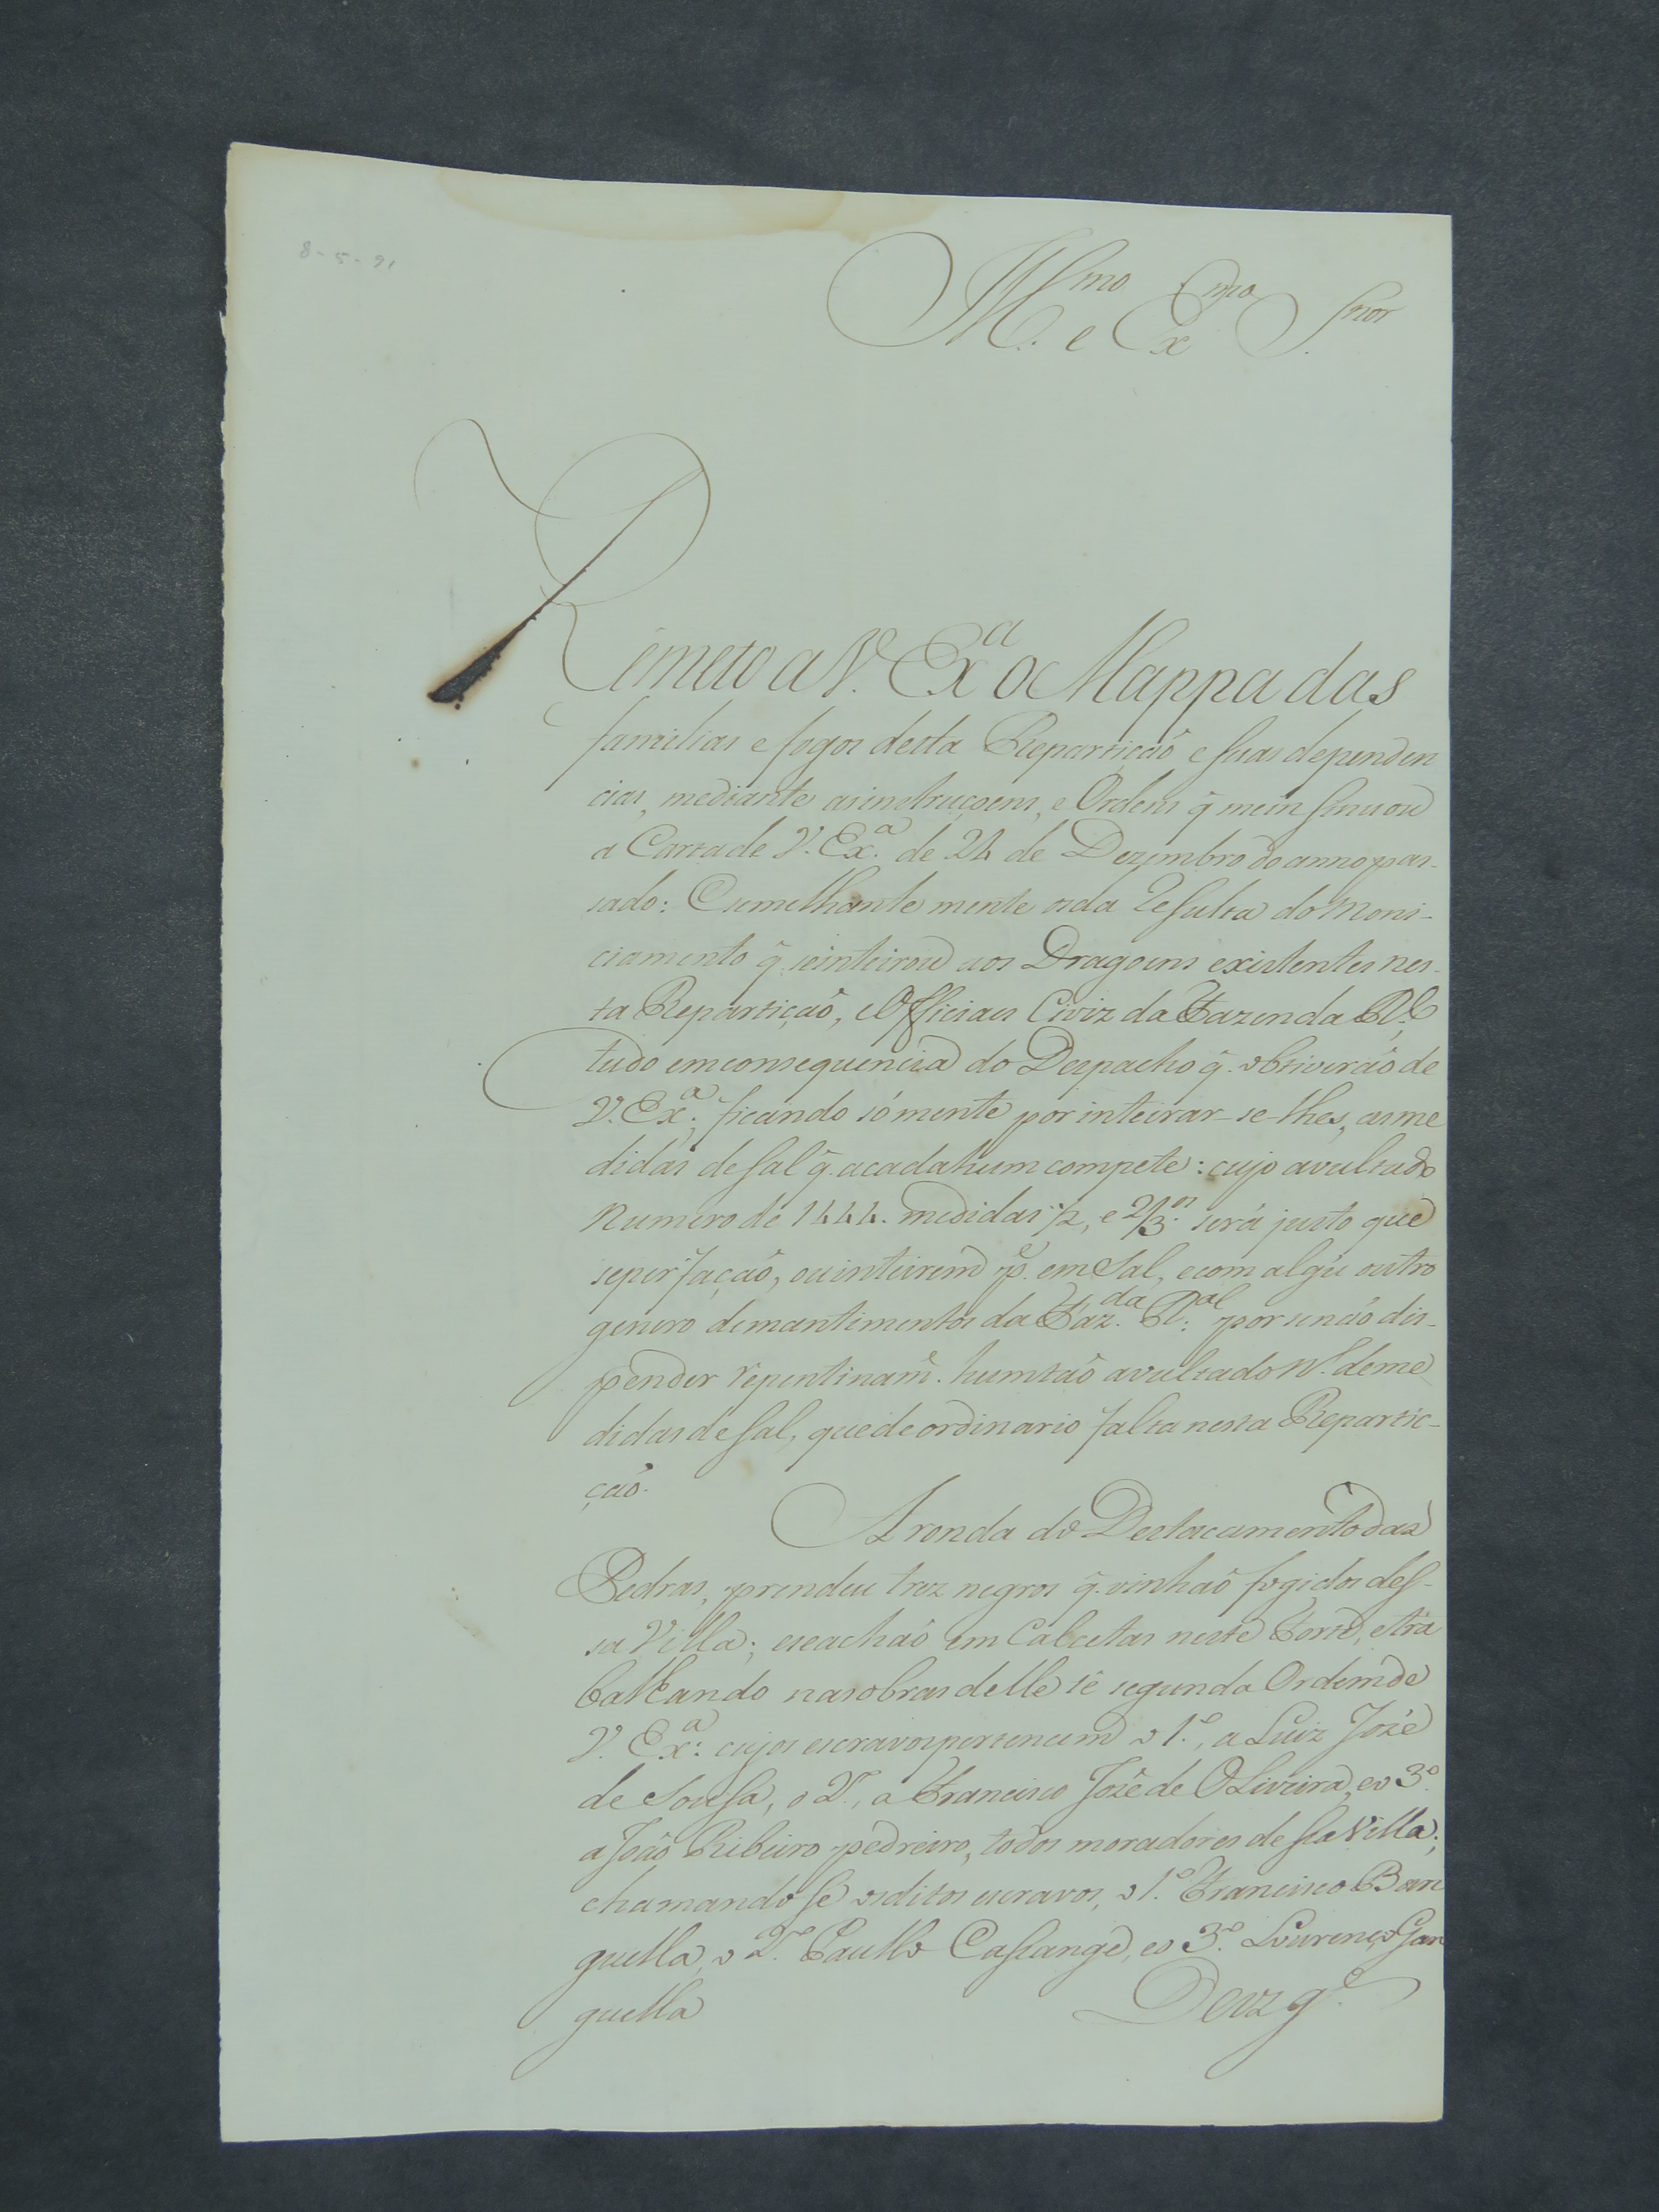 8-5-91
Illmo. e Exmo Snor
Remeto a V. Exa o Mappa das
familias e fogos desta Repartição e suas dependen
cias, mediante as instruçoens, e Ordens q̃ me in sinuou
a Carta de V. Exa. de 24 de Dezembro do anno pas-
sado: E semelhante mente o da Resulta do Moni-
ciamento q̃ se inteirou aos Dragoens existentes nes-
ta Repartição, e Officiaes Civiz da Fazenda Rl.,
tudo em consequencia do Despacho q̃. obtiverão de
V. Exa.; ficando sómente por inteirar-se-lhes, as me
didas de sal q̃. a cada hum compete: cujo avultado
Numero de 1444. medidas ½, e 2/3.os será justo que
se perfação, ou inteirem p.e em Sal, e com algũ outro
genero de mantimentos da Faz.da R.al por se não dis-
pender repentinam̃. hum tão avultado N.º de me
didas de sal, que de ordinario falta nessa Repartic-
ção.
A ronda do Destacamento das
Pedras, prendeu trez negros q̃. vinhaõ fogidos des-
sa Villa; e se achaõ em Calcetas neste Forte, e tra
balhando nas obras delle té segunda Ordem de
V. Exa: cujos escravos pertencem o 1.º, a Luiz Jozé
de Sousa, o 2.º, a Francisco Jozé de OLiveira, e o 3.º
a João Ribeiro pedreiro, todos moradores dessa Villa;
chamando se os ditos escravos, o 1.º Francisco Ban
guella, o 2.º Paullo Cassange, e o 3.º Lourenço Gan
guella
Deoz g.e